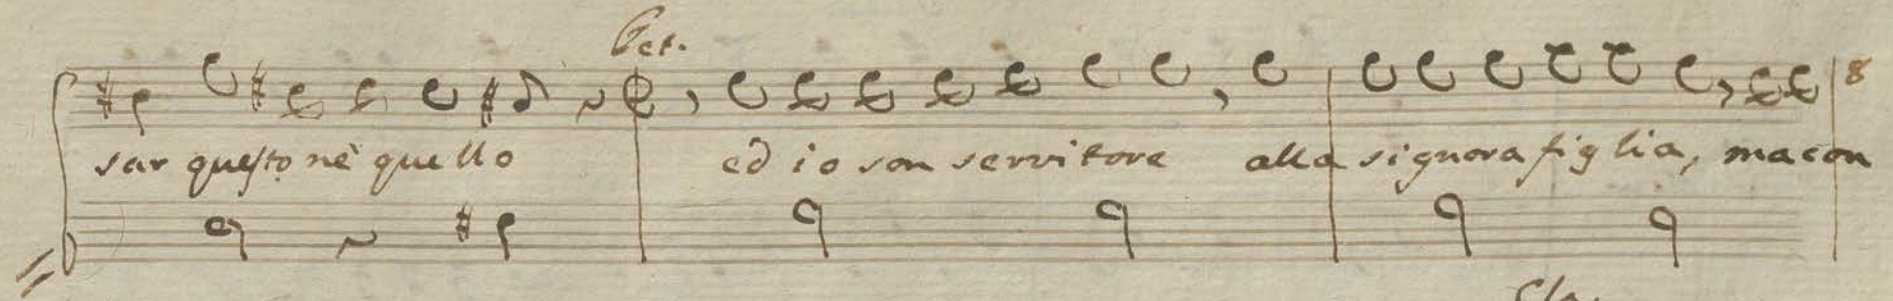 sar questo nè quello ed io son servitore alla signora figlia, ma con
8